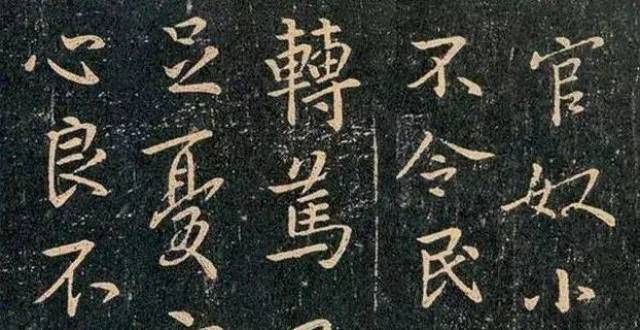 官奴小
不令民
轉篤
足憂
心良不